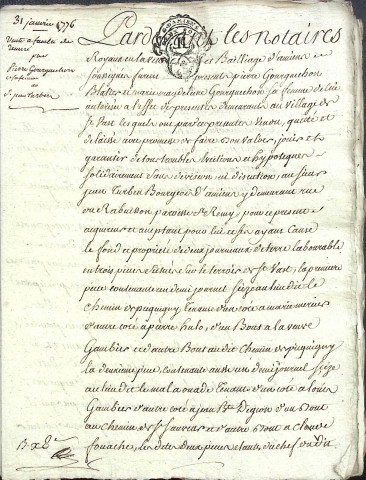 31 janvier 1776
Vente a faculté de
remeré
par
Pierre Gourguechon
et sa femme
au
Sr. jean Turbier
Pardevant les notaires
Royaux en la ville et Bailliage d'amiens
soussignes furent presents pierre Gourguechon
et marie magdelaine Gourguechon sa femme de lui
autorisée a l'effet des presentes demeurants au village de
St. Vast lesquels ont par ces presentes Vendu, quitté et
delaissé avec promesse de faire Valoir, jouir et
garantir de tous troubles evictions et hypoteques
solidairement sans division ni discution, au sieur
jean Turbier Bourgeois d'amiens y demeurant rue
du Rabuisson paroisse St. Remy, pour ce present et
acquereur et acceptant pour lui et ses ayant cause
le fond et proprieté de deux journeaux de terre labourable
en trois pieces situés sur le terroir de St. Vast, la premiere
piece contenante un demi journel seize au lieu dit le
chemin de piquigny Tenant d'un coté a marie
d'autre coté a pierre hulo, d'un Bout a la veuve
Gambier et d'autre Bout au dit chemin de piquigny
la deuxieme piece contenante aussi un demi journel size
au lieu dit le Tenant d'un coté a louis
Gambier d'autre coté a jean Bte. Digeon d'un Bout
au chemin de St. Sauveur et d'autre Bout a claude
fouache, les dites deux pieces